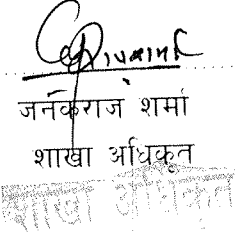 जनकराज शर्मा
शाखा अधिकृत
शाखा अधिकृत